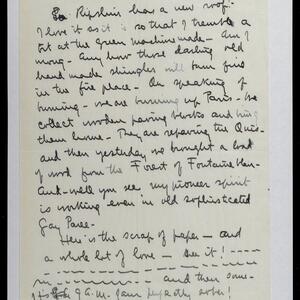 So Ripshin has a new roof.
I love it as it is so that I tremble a
bit at the green machine made - Am I
wrong. Any how those darling old
hand made shingles will burn fine
in the fire place. Oh speaking of
burning - we are burning up Paris. We
collect wooden paving blocks and bring
them home - They are repairing the Quais -
and then yesterday we brought a load
of wood from the Forest of Fontainebleau.
And - well you see my pioneer spirit
is working even in old sophisticated
Gay Paree.
Here is the scrap of paper - and
a whole lot of love - see it!
and then some -
It is 9 A.M.